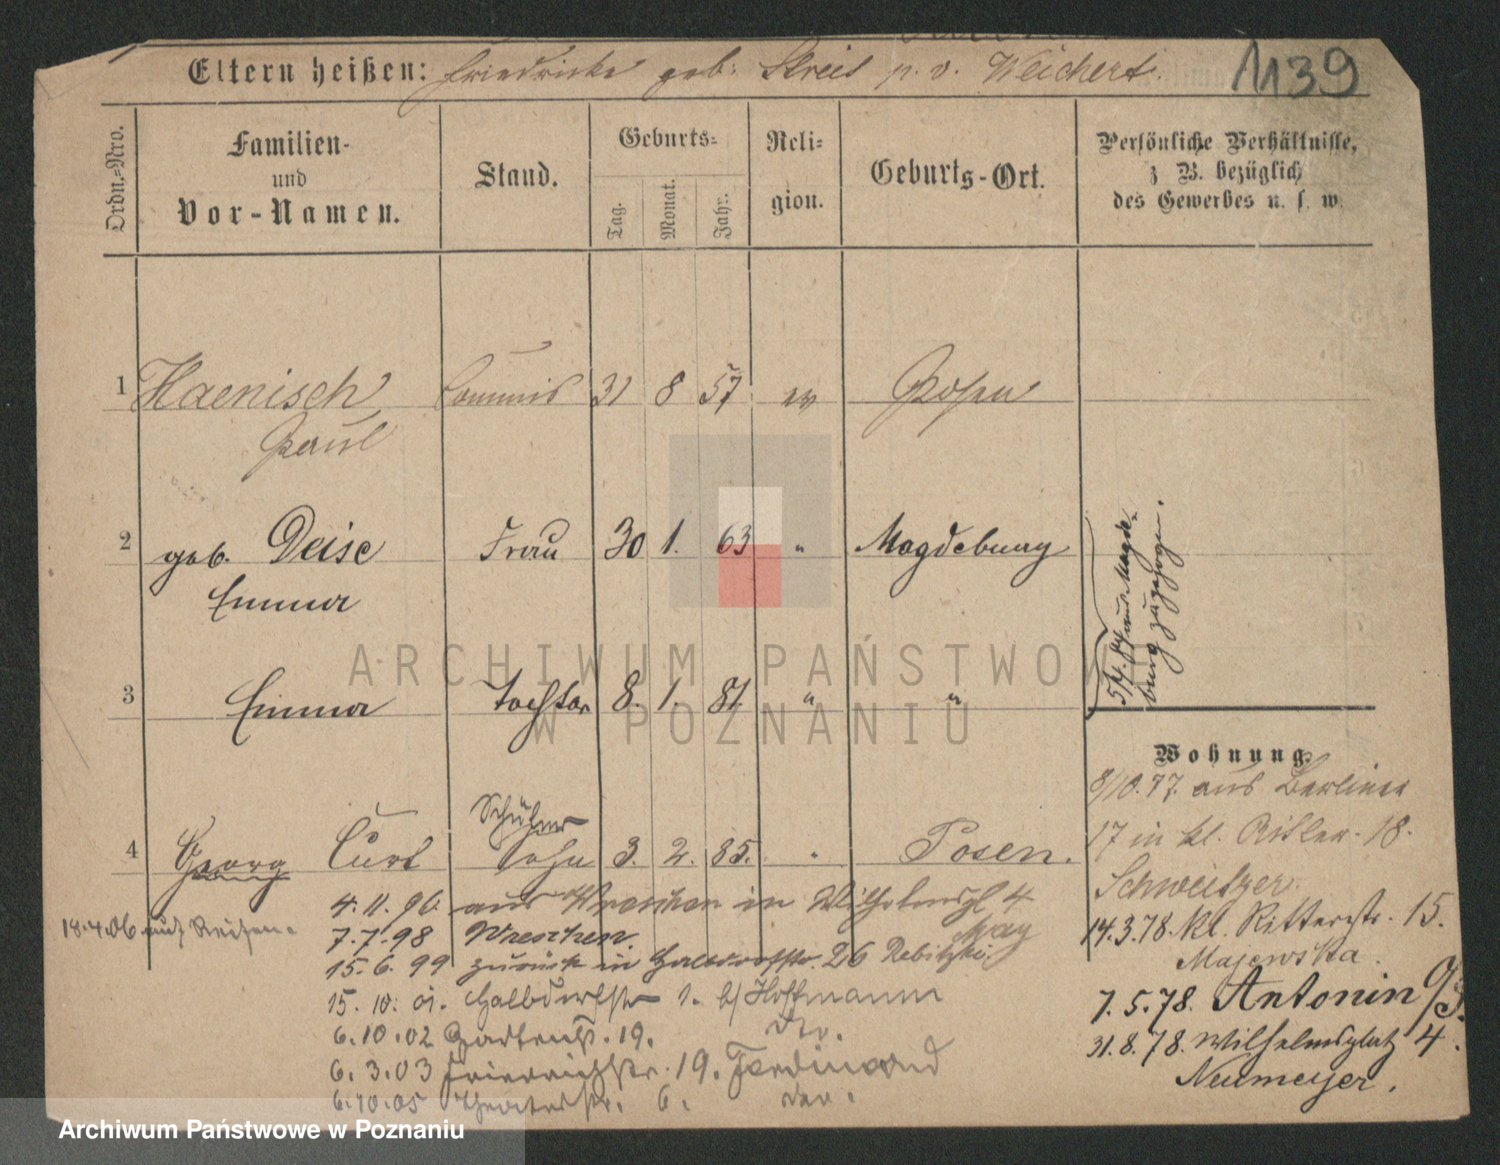 Eltern heißen: Friedricke geb. Streit p. v. Weichert.
1139
Ordn.-Nro.
Familien-
und
Vor-Namen.
Stand.
Geburts-
Tag. Monat. Jahr.
Reli-
gion.
Geburts-Ort.
Persönliche Verhältnisse,
z B. bezüglich
des Gewerbes u. s. w.
1 Haenisch Commis 31 8 57 ev Posen
Paul
2 geb. Deise Frau 30 1. 63 " Magdeburg
Emma
3 Emma Tochter 8. 1. 81. " "
aus Magde-
burg zugezogen.
Schüler
4 Georg Curt Sohn 3. 2. 85. " Posen.
4. 11. 96. aus Wreschen in Wilhelmspl 4
May
18.4.06 auf Reisen.
7. 7. 98 Wreschen.
15. 6. 99 zurück in Halbdorfstr. 26 Rebitzki.
15. 10. 01. Halbdorfstr 1. b/ Hoffmann
6. 10. 02 Gartenstr. 19. dto.
6. 3. 03 Friedrichstr. 19. Ferdinand
6. 10. 05 Theaterstr. 6.
Wohnung.
8/10. 77. aus Berliner
17 in kl. Ritter. 18.
Schweitzer.
14. 3. 78. kl. Ritterstr. 15.
Majewska.
7. 5. 78. Antonin
31. 8. 78. Wilhelmsplatz 4.
Neumeyer.
ARCHIWUM PAŃSTWOW
W POZNANIU
Archiwum Państwowe w Poznaniu